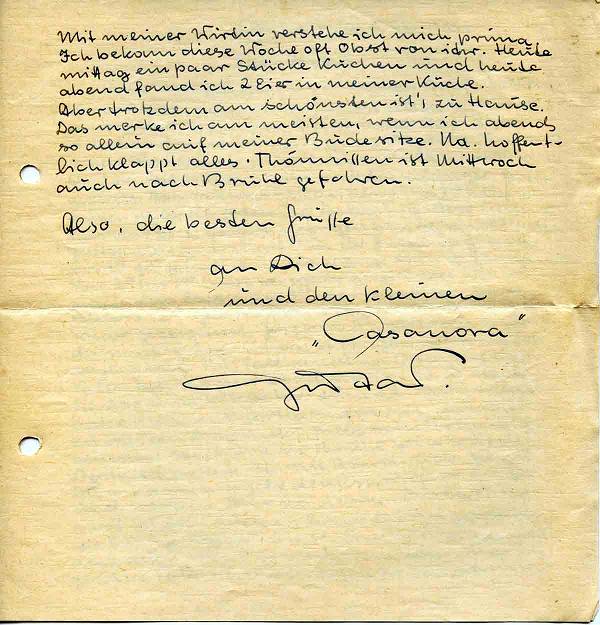 Mit meiner Wirtin verstehe ich mich prima
Ich bekam diese Woche oft Obst von ihr. Heute
mittag ein paar Stücke Kuchen und heute
abend fand ich 2 Eier in meiner Küche.
Aber trotzdem am schönsten ist's zu Hause.
Das merke ich am meisten, wenn ich abends
so allein auf meiner Bude sitze. Na, hoffent-
lich klappt alles. ist Mittwoch
auch nach Brühl gefahren.
Also, die besten Grüsse
an Dich
und den kleinen
„Casanova"